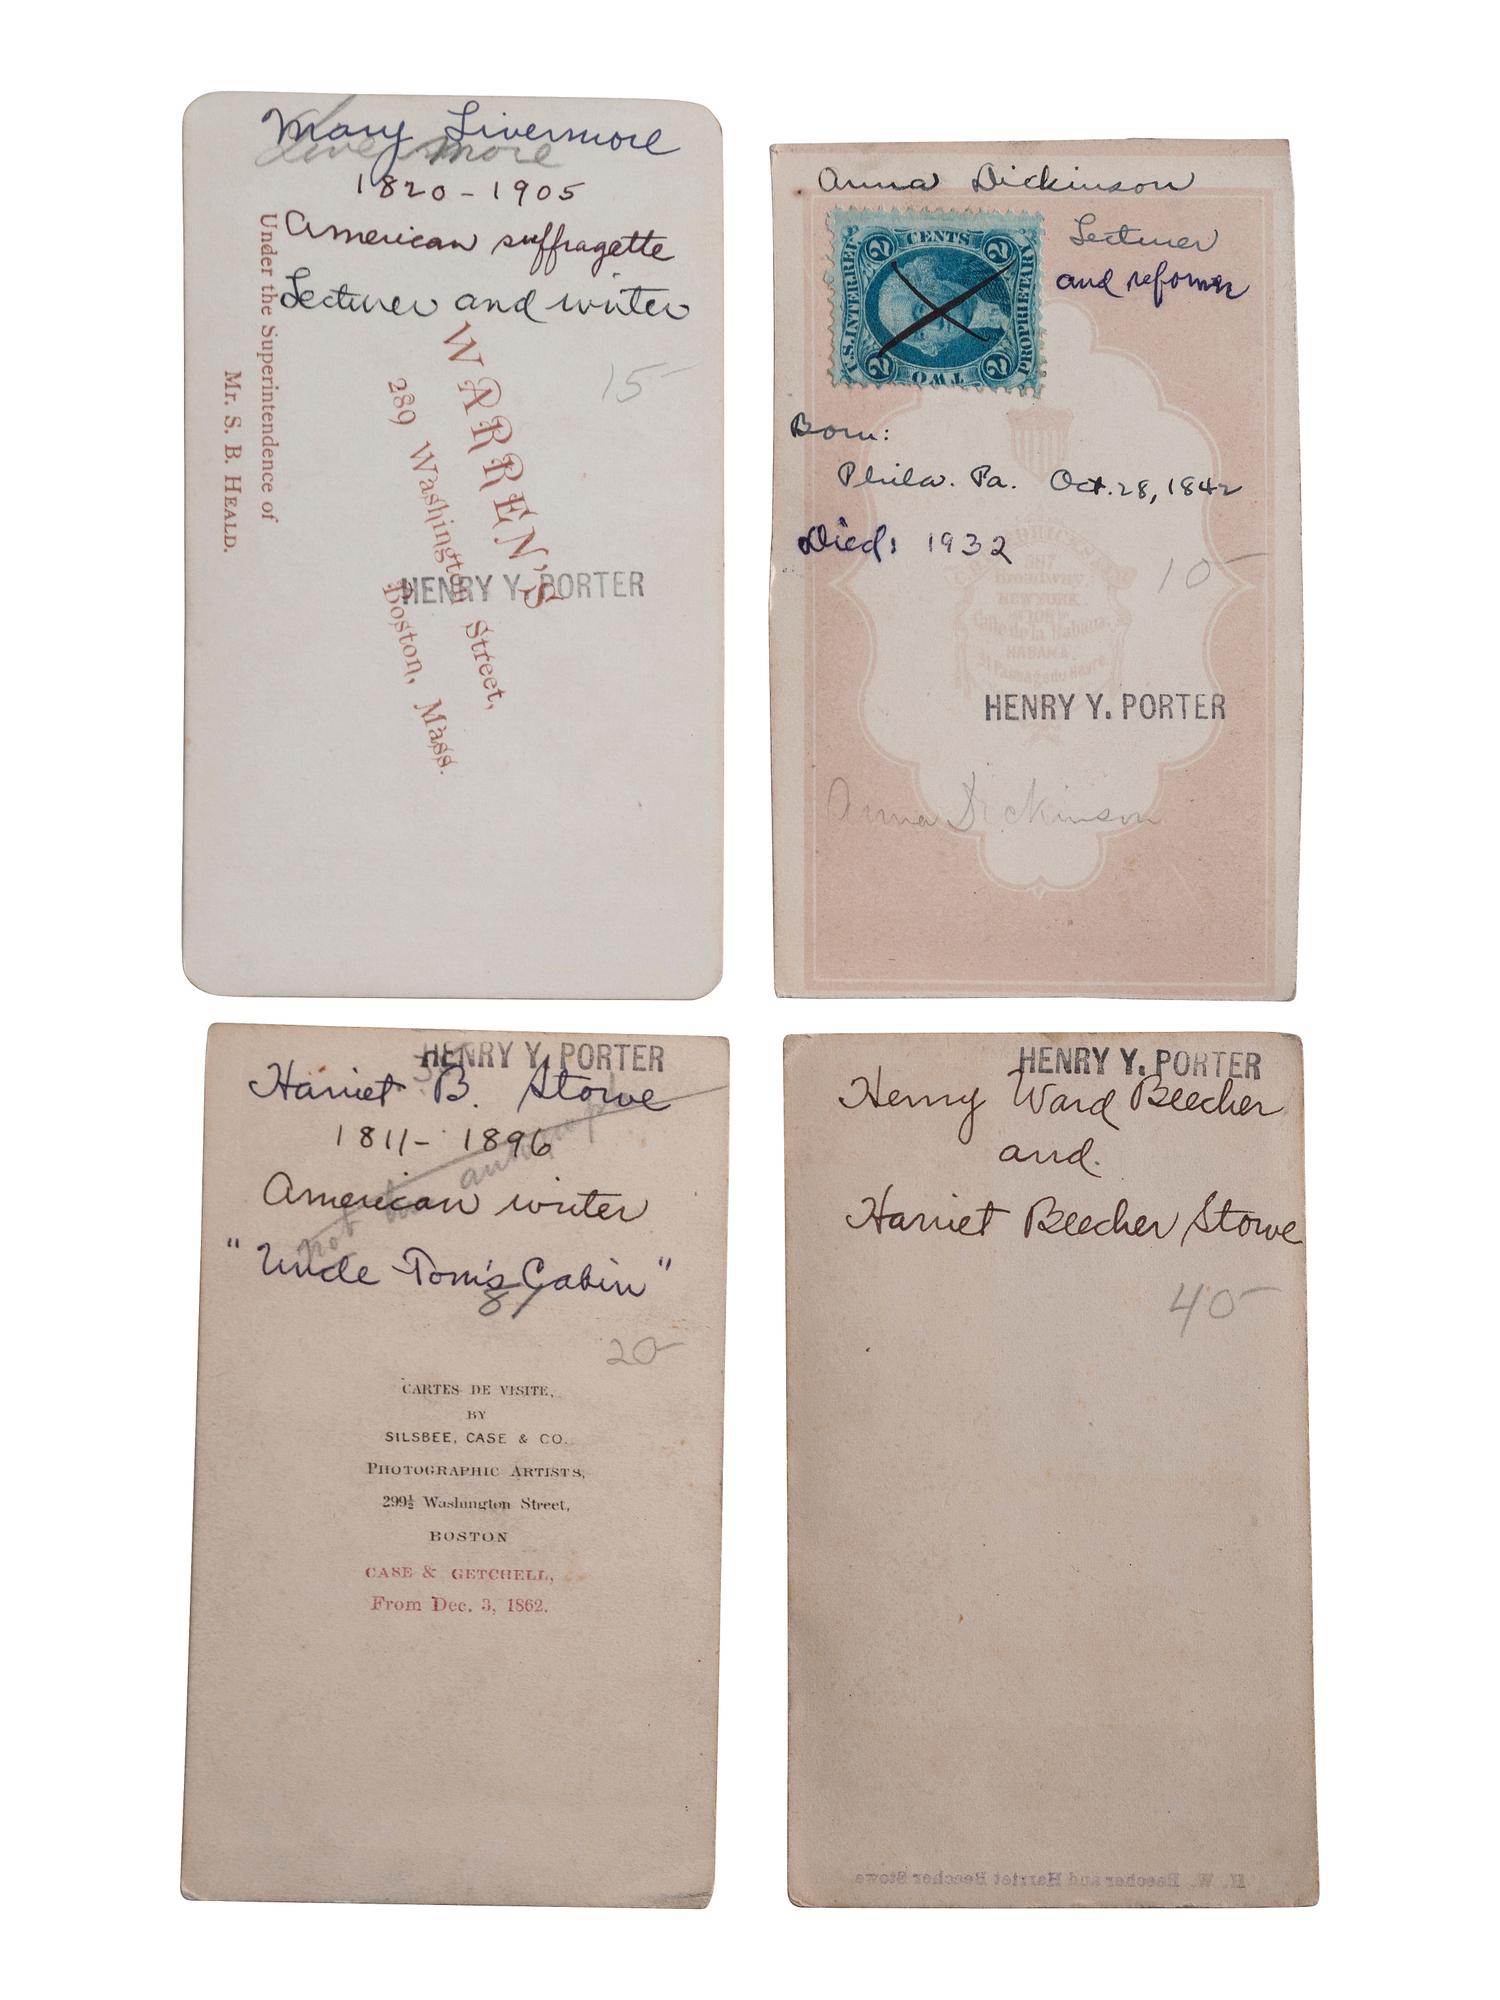 Mary Livermore
Livermore
1820 - 1905
American suffragette
Lecturer and writer
15-
Under the Superintendence of
Mr. S. B. HEALD.
WARREN'S
289 Washington Street,
Boston, Mass.
HENRY Y. PORTER
Anna Dickinson
Lecturer
and reformer
U.S. INTER. REV.
2 CENTS 2
PROPRIETARY
2 TWO 2
Born:
Phila. Pa. Oct. 28, 1842
Died: 1932
10-
587
Broadway,
NEW YORK
Calle de la Habana,
HABANA
HENRY Y. PORTER
Anna Dickinson
HENRY Y. PORTER
Harriet B. Stowe
1811 - 1896
American writer
not an autograph
"Uncle Tom's Cabin"
20-
CARTES DE VISITE,
BY
SILSBEE, CASE & CO.
PHOTOGRAPHIC ARTISTS,
299½ Washington Street,
BOSTON
CASE & GETCHELL,
From Dec. 3, 1862.
HENRY Y. PORTER
Henry Ward Beecher
and.
Harriet Beecher Stowe
40-
H. W. Beecher and Harriet Beecher Stowe